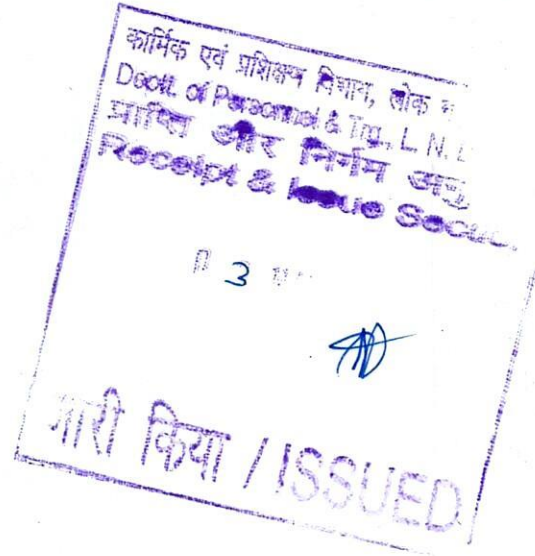 कार्मिक एवं प्रशिक्षण विभाग, लोक
Deptt. of Personnel & Trg., L. N.
प्राप्ति और निर्गम अनु.
Receipt & Issue Section
3
जारी किया / ISSUED